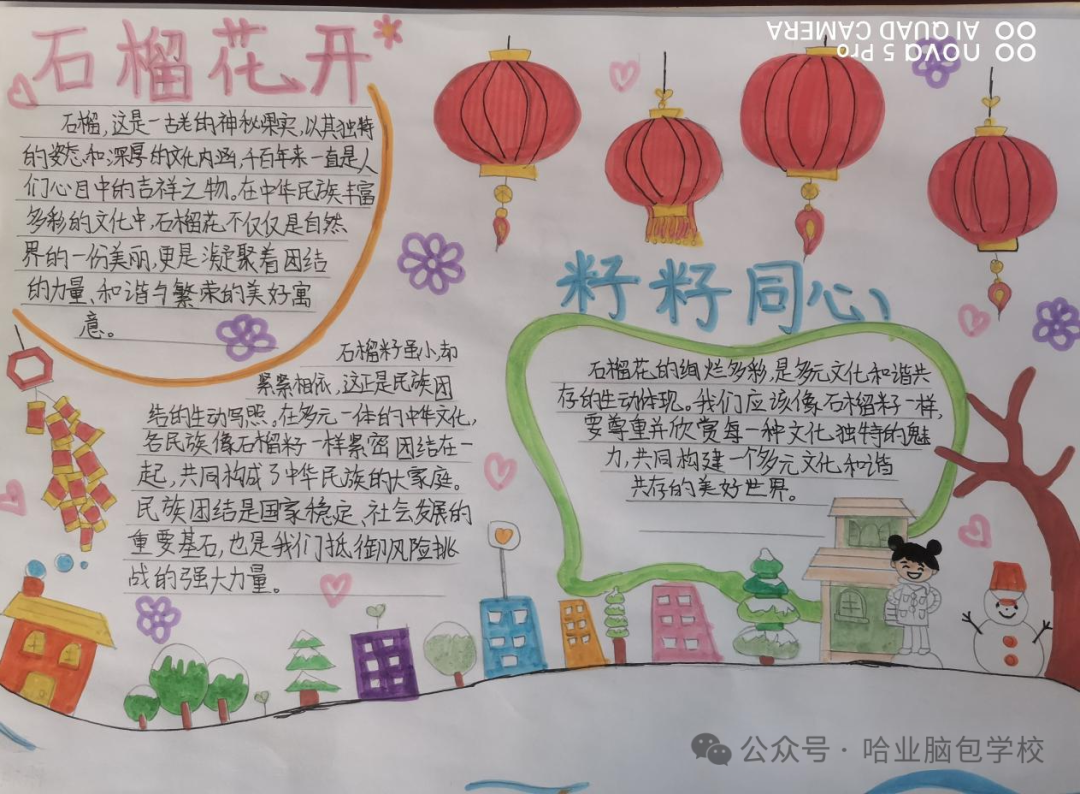 石榴花开
石榴，这是一古老的神秘果实，以其独特
的姿态和深厚的文化内涵，千百年来一直是人
们心目中的吉祥之物。在中华民族丰富
多彩的文化中，石榴花不仅仅是自然
界的一份美丽，更是凝聚着团结
的力量、和谐与繁荣的美好寓
意。
石榴籽虽小，却
紧紧相依，这正是民族团
结的生动写照。在多元一体的中华文化，
各民族像石榴籽一样紧密团结在一
起，共同构成了中华民族的大家庭。
民族团结是国家稳定、社会发展的
重要基石，也是我们抵御风险挑
战的强大力量。
籽籽同心
石榴花的绚烂多彩，是多元文化和谐共
存的生动体现。我们应该像石榴籽一样，
要尊重并欣赏每一种文化独特的魅
力，共同构建一个多元文化和谐
共存的美好世界。
nova 5 Pro
AI QUAD CAMERA
公众号·哈业脑包学校